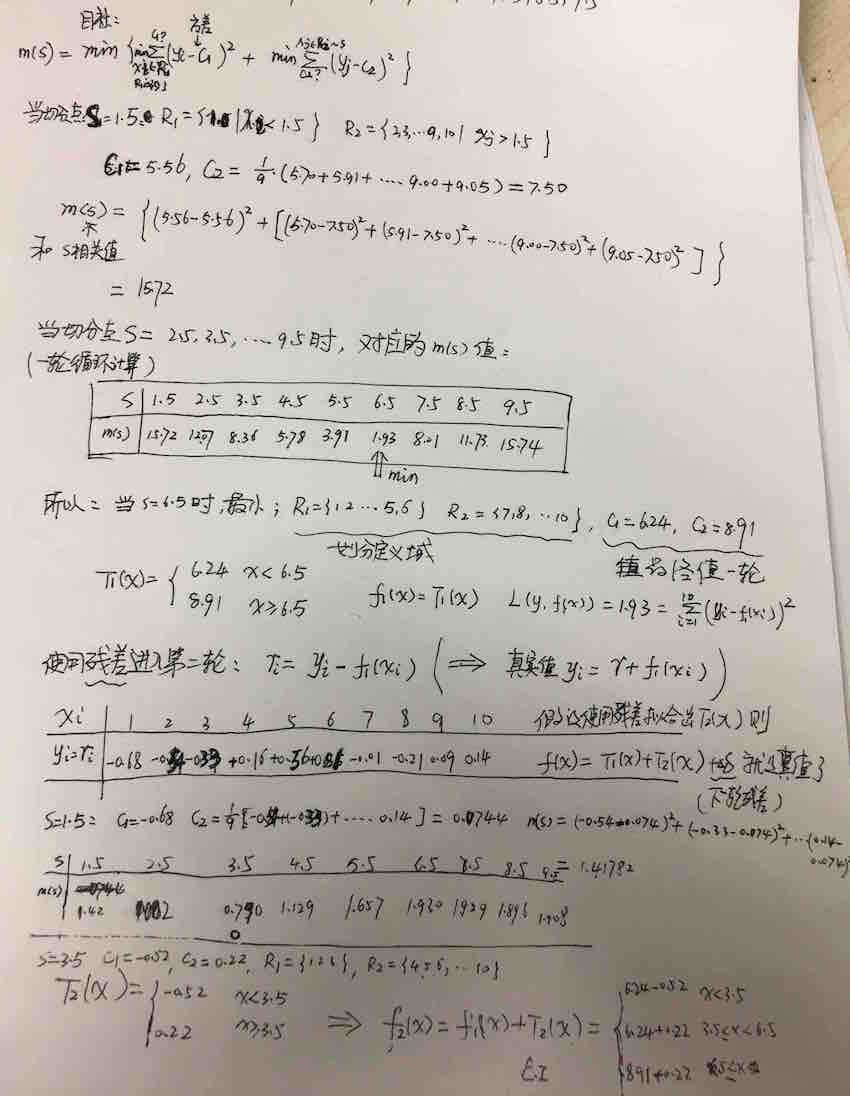 目标: 方差
m(s) = min { min Σ (yi - C1)² + min Σ (yj - C2)² }
当切分点 S=1.5 R1 = { | x < 1.5 } R2 = {2,3,...9,10 | xj > 1.5 }
C1 = 5.56, C2 = 1/9 · (5.70+5.91+ .... 9.00+9.05) = 7.50
m(s) = { (5.56-5.56)² + [(5.70-7.50)² + (5.91-7.50)² + ... (9.00-7.50)² + (9.05-7.50)² ] }
和 S相关值
= 15.72
当切分点 S= 2.5, 3.5, .... 9.5时, 对应的 m(s) 值:
(一轮循环计算)
S 1.5 2.5 3.5 4.5 5.5 6.5 7.5 8.5 9.5
m(s) 15.72 12.07 8.36 5.78 3.91 1.93 8.01 11.73 15.74
⇑ min
所以: 当 s=6.5时,最小; R1={1,2 ... 5,6} R2 = {7,8, ..10}, C1=6.24, C2=8.91
划分定义域
T1(x) = { 6.24 x < 6.5
8.91 x ≥ 6.5
f1(x) = T1(x) L(y, f(x)) = 1.93 = Σ (yi - f1(xi))²
使用残差进入第二轮: ri = yi - f1(xi) ( ⟹ 真实值 yi = r + f1(xi) )
xi 1 2 3 4 5 6 7 8 9 10 假设使用残差拟合出 T2(x) 则
yi=ri -0.68 -0.54 -0.33 +0.16 +0.56 -0.01 -0.21 0.09 0.14 f(x) = T1(x)+T2(x) 就是真值了
(下轮残差)
S=1.5: C1=-0.68 C2= 1/9[-0.54+(-0.33)+ .... 0.14 ] = 0.0744 m(s) = (-0.54-0.074)² + (-0.33-0.074)² + ...(0.14-0.074)²
= 1.41782
S 1.5 2.5 3.5 4.5 5.5 6.5 8.5 8.5 9.5
m(s) 1.42 0.790 1.129 1.657 1.930 1.929 1.898 1.908
S=3.5 C1=-0.52, C2=0.22, R1={1 2 3}, R2={4,5,6, ...10}
T2(x) = { -0.52 x<3.5
0.22 x≥3.5
⟹ f2(x) = f1(x)+T2(x) = { 6.24-0.52 x<3.5
6.24+0.22 3.5≤x<6.5
8.91+0.22 6.5≤x